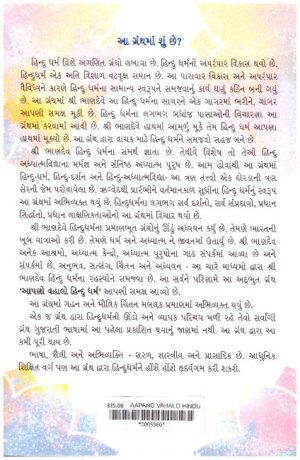 આ ગ્રંથમાં શું છે?
હિન્દુ ધર્મ વિશે અગણિત ગ્રંથો લખાયા છે. હિન્દુ ધર્મનો અપરંપાર વિકાસ થયો છે.
હિન્દુધર્મ એક અતિ વિશાળ વટવૃક્ષ સમાન છે. આ પારાવાર વિકાસ અને અપરંપાર
વૈવિધ્યને કારણે હિન્દુ ધર્મના સામાન્ય સ્વરૂપને સમજવાનું કાર્ય ઘણું કઠિન બની ગયું
છે. આ ગ્રંથમાં શ્રી ભાણદેવે આ હિન્દુ ધર્મના સાગરને એક ગાગરમાં ભરીને, ગાગર
આપણી સમક્ષ મૂકી છે. હિન્દુ ધર્મના લગભગ બધાંજ પાસાઓની વિચારણા આ
ગ્રંથમાં કરવામાં આવી છે. શ્રી ભાણદેવે હાથમાં આમળું મૂકે તેમ હિન્દુ ધર્મ આપણા
હાથમાં મૂક્યો છે. આ ગ્રંથ દ્વારા વાચક માટે હિન્દુ ધર્મને સમજવો સહજ બને છે.
શ્રી ભાણદેવ હિન્દુ ધર્મના સમર્થ જ્ઞાતા છે. તેથીયે વિશેષ તો તેઓ હિન્દુ
અધ્યાત્મવિદ્યાના મર્મજ્ઞ અને સંનિષ્ઠ અધ્યાત્મ પુરુષ છે. આમ હોવાથી આ ગ્રંથમાં
હિન્દુ-ધર્મ, હિન્દુ-દર્શન અને હિન્દુ-અધ્યાત્મવિદ્યા- આ ત્રણ તત્ત્વો એક દોરડાની ત્રણ
સેરની જેમ પરોવાયેલા છે. ઋગ્વેદથી પ્રારંભીને વર્તમાનકાલ સુધીના હિન્દુ ધર્મનું સ્વરૂપ
આ ગ્રંથમાં અભિવ્યક્ત થયું છે. હિન્દુધર્મના લગભગ સર્વ દર્શનો, સર્વ સંપ્રદાયો, પ્રધાન
સિદ્ધાંતો, પ્રધાન લાક્ષણિકતાઓનો આ ગ્રંથમાં વિચાર થયો છે.
શ્રી ભાણદેવે હિન્દુધર્મના પ્રમાણભૂત ગ્રંથોનું ઊંડું અધ્યયન કર્યું છે. તેમણે ભારતની
ખૂબ યાત્રાઓ કરી છે. તેમણે ધર્મ અને અધ્યાત્મ ને જીવનમાં ઉતાર્યું છે. શ્રી ભાણદેવ
અનેક આશ્રમો, અધ્યાત્મ કેન્દ્રો, અધ્યાત્મ પુરુષોના ગાઢ સંપર્કમાં આવ્યા છે અને
સંપર્કમાં છે. અનુભવ, સત્સંગ, ચિંતન અને અધ્યયન - આ ચારે માધ્યમો દ્વારા શ્રી
ભાણદેવ હિન્દુ ધર્મના રહસ્યોને સમજ્યા છે. આ સર્વને પરિણામે આ અદ્ભુત ગ્રંથ
'આપણો વહાલો હિન્દુ ધર્મ' આપણી સમક્ષ આવ્યો છે.
આ ગ્રંથમાં ગહન અને મૌલિક ચિંતન મબલક પ્રમાણમાં અભિવ્યક્ત થયું છે.
એક જ ગ્રંથ દ્વારા હિન્દુધર્મનો ઊંડો અને વ્યાપક પરિચય મળી રહે તેવો સર્વાંગી
ગ્રંથ ગુજરાતી ભાષામાં આ પહેલા પ્રકાશિત થયાનું જાણમાં નથી. આ ગ્રંથ દ્વારા આ
કમી પૂરી થાય છે.
ભાષા, શૈલી અને અભિવ્યક્તિ - સરળ, શાસ્ત્રીય અને પ્રાસાદિક છે. આધુનિક
શિક્ષિત વર્ગ પણ આ ગ્રંથ દ્વારા હિન્દુધર્મને હોંશે હોંશે હૃદયંગમ કરી શકશે.
335.08 AAPANO VAHALO HINDU
*0005960*